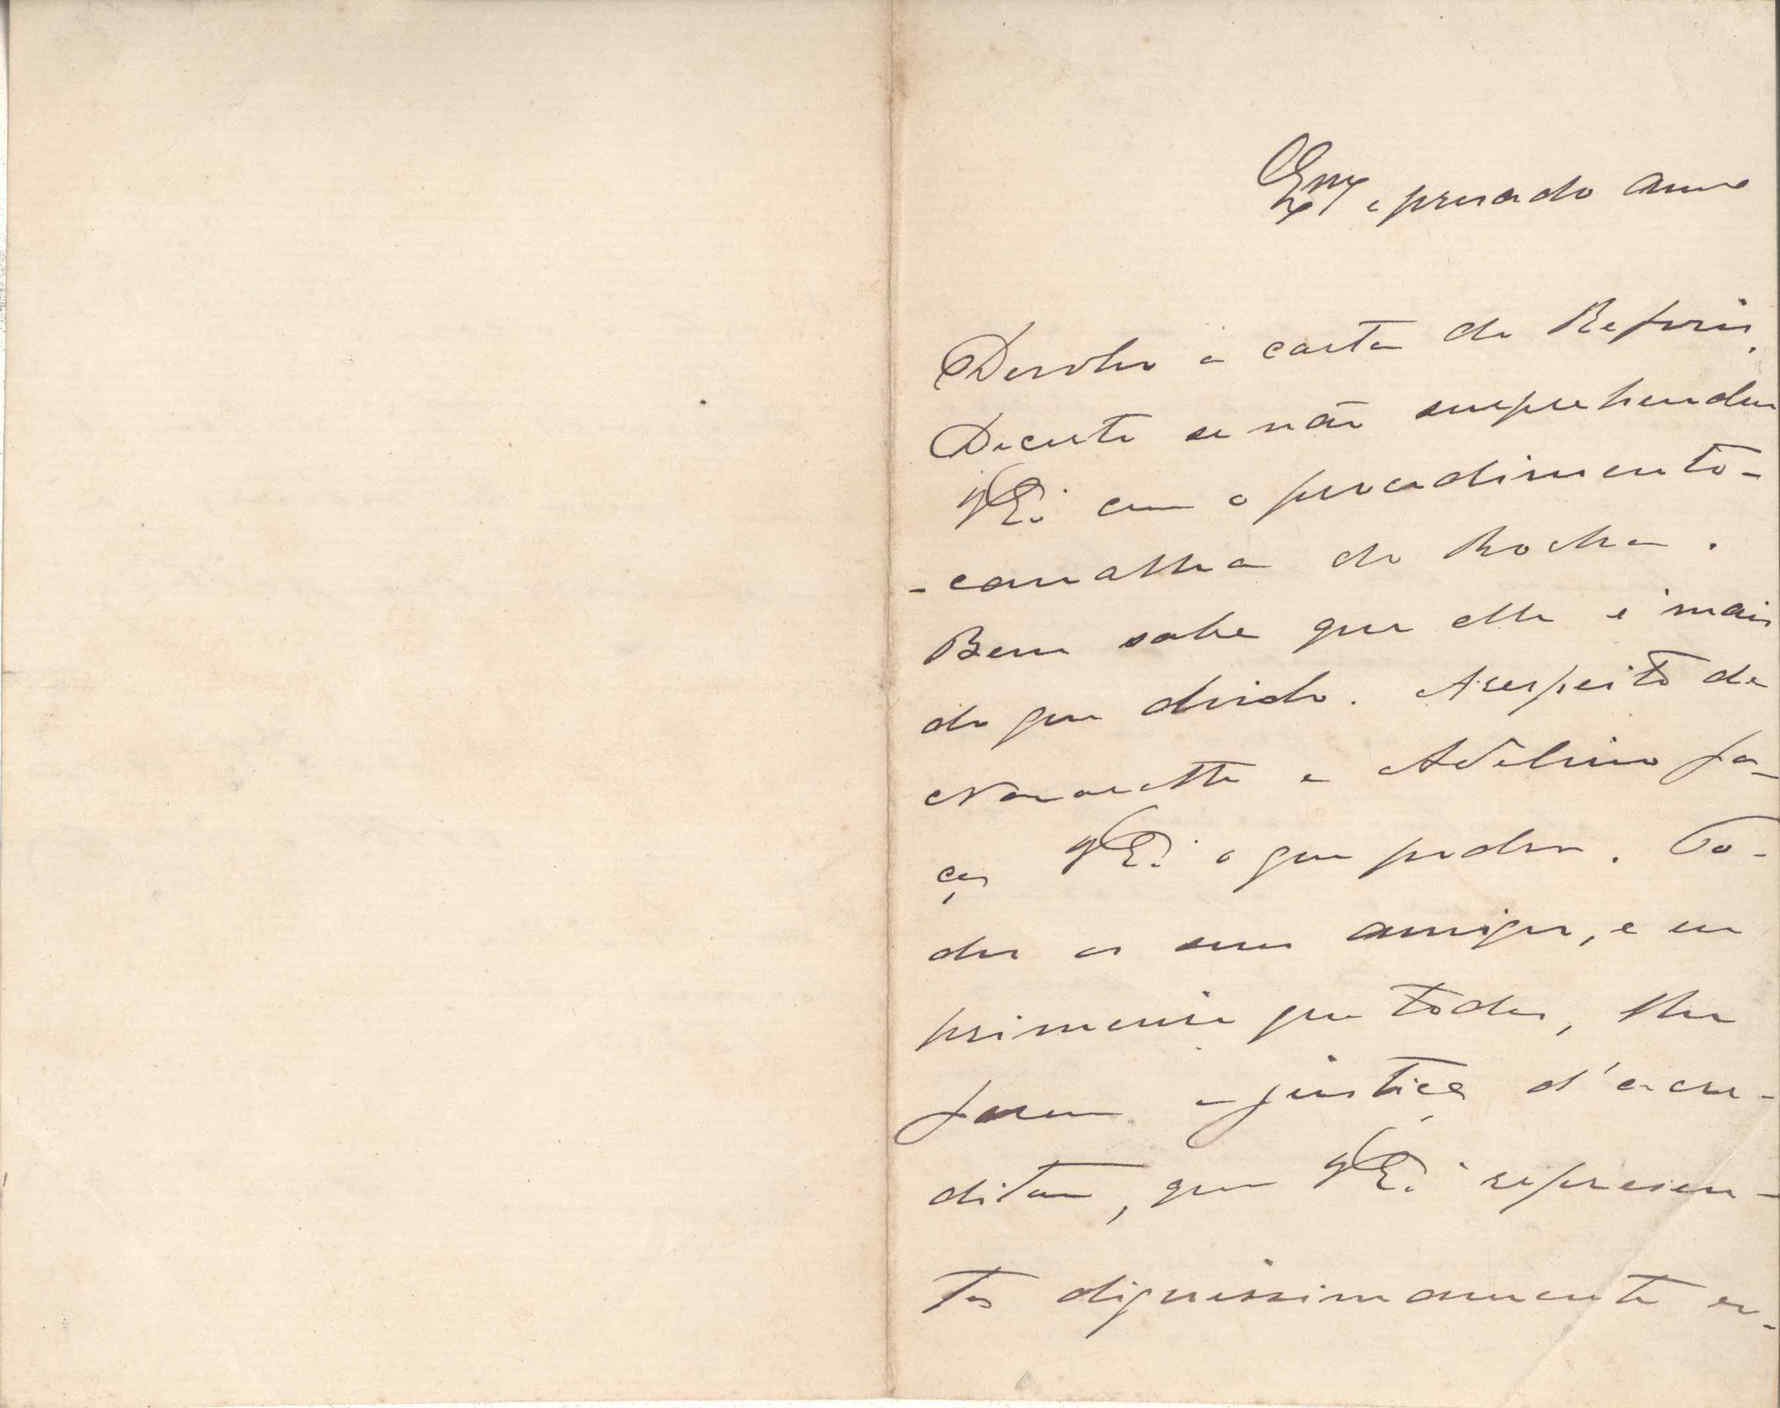 Exmo e presado amo
Devolvo a carta do
Decerto se não surprehendeu
VEª com o procedimento-
-canalha do Rocha.
Bem sabe que elle é mais
do que doido. A respeito de
Navarette e Avelino fa-
ça VEª o que poder. To-
dos os seus amigos, e eu
primeiro que todos, lhe
fazem a justiça d'acre-
ditar, que VEª represen-
ta dignissimamente